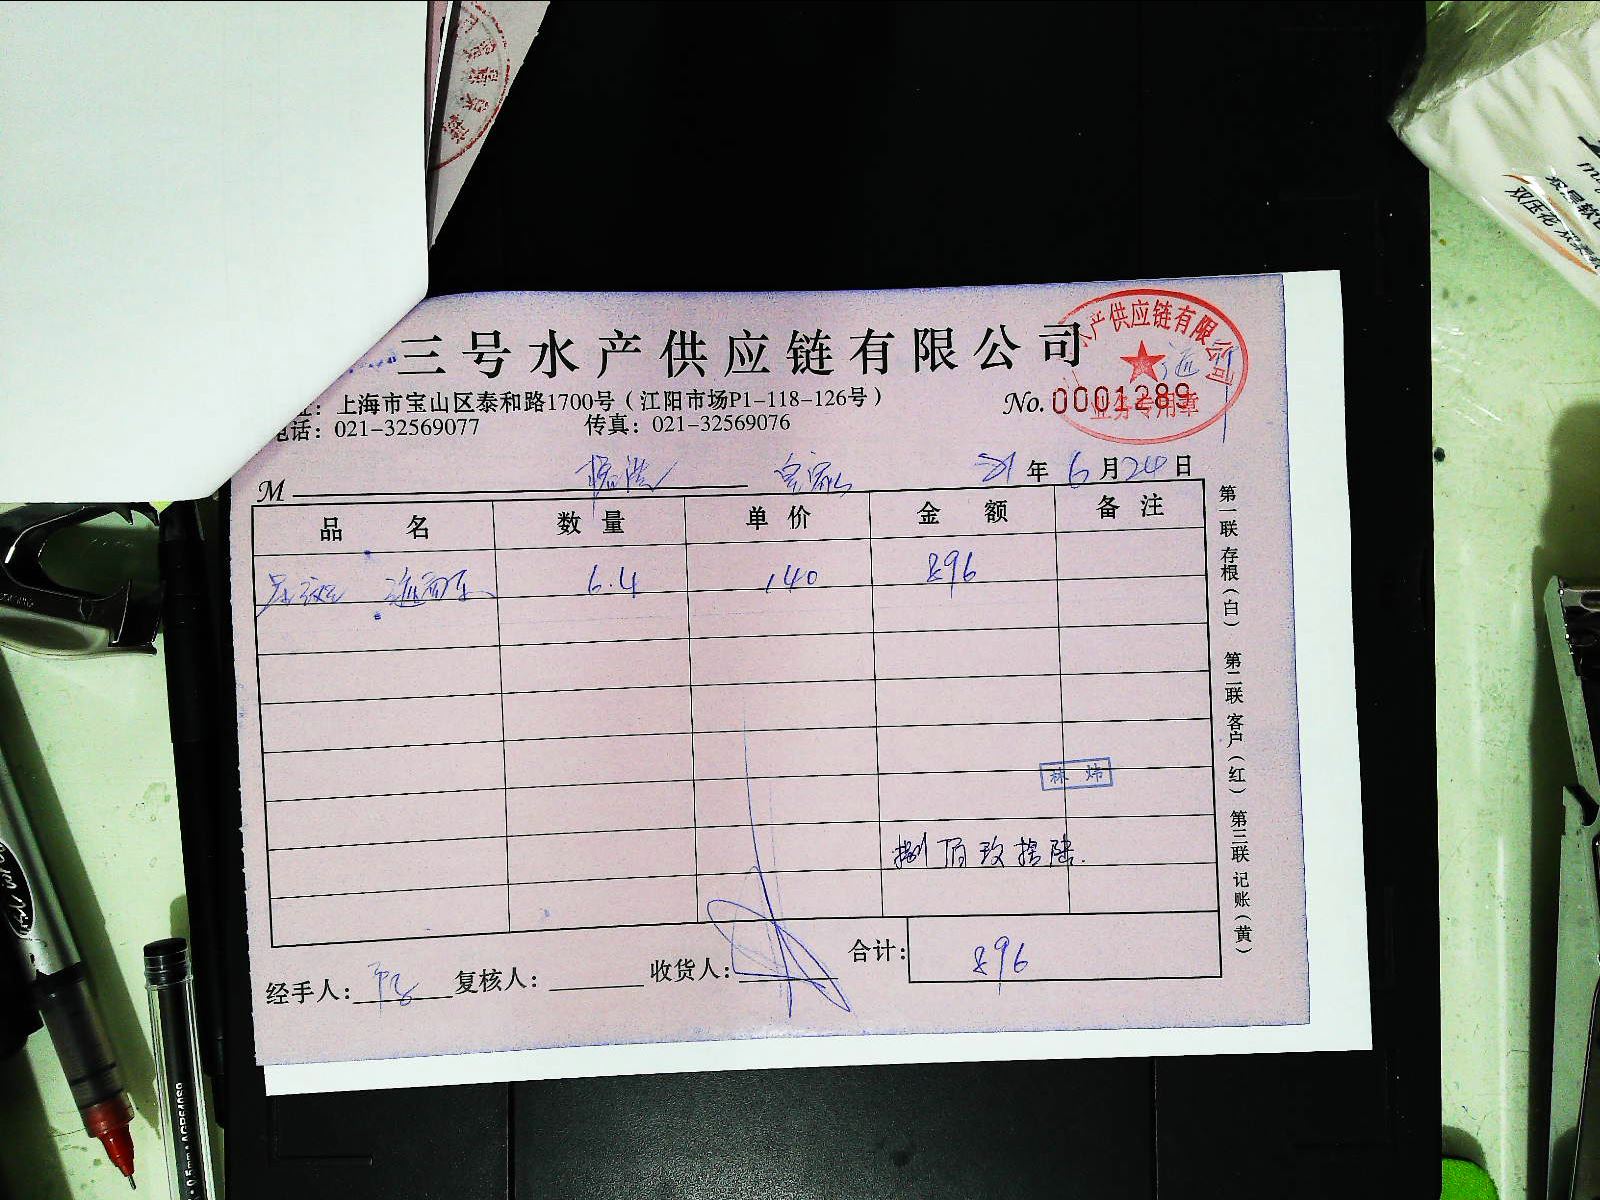 三号水产供应链有限公司
水产供应链有限公司
业务专用章
址：上海市宝山区泰和路1700号（江阳市场P1-118-126号）
No. 0001289
电话：021-32569077 传真：021-32569076
M 21年6月24日
品名 数量 单价 金额 备注
6.4 140 896
林炜
捌佰玖拾陆
合计：896
经手人： 复核人： 收货人：
第一联 存根（白） 第二联 客户（红） 第三联 记账（黄）
双压花